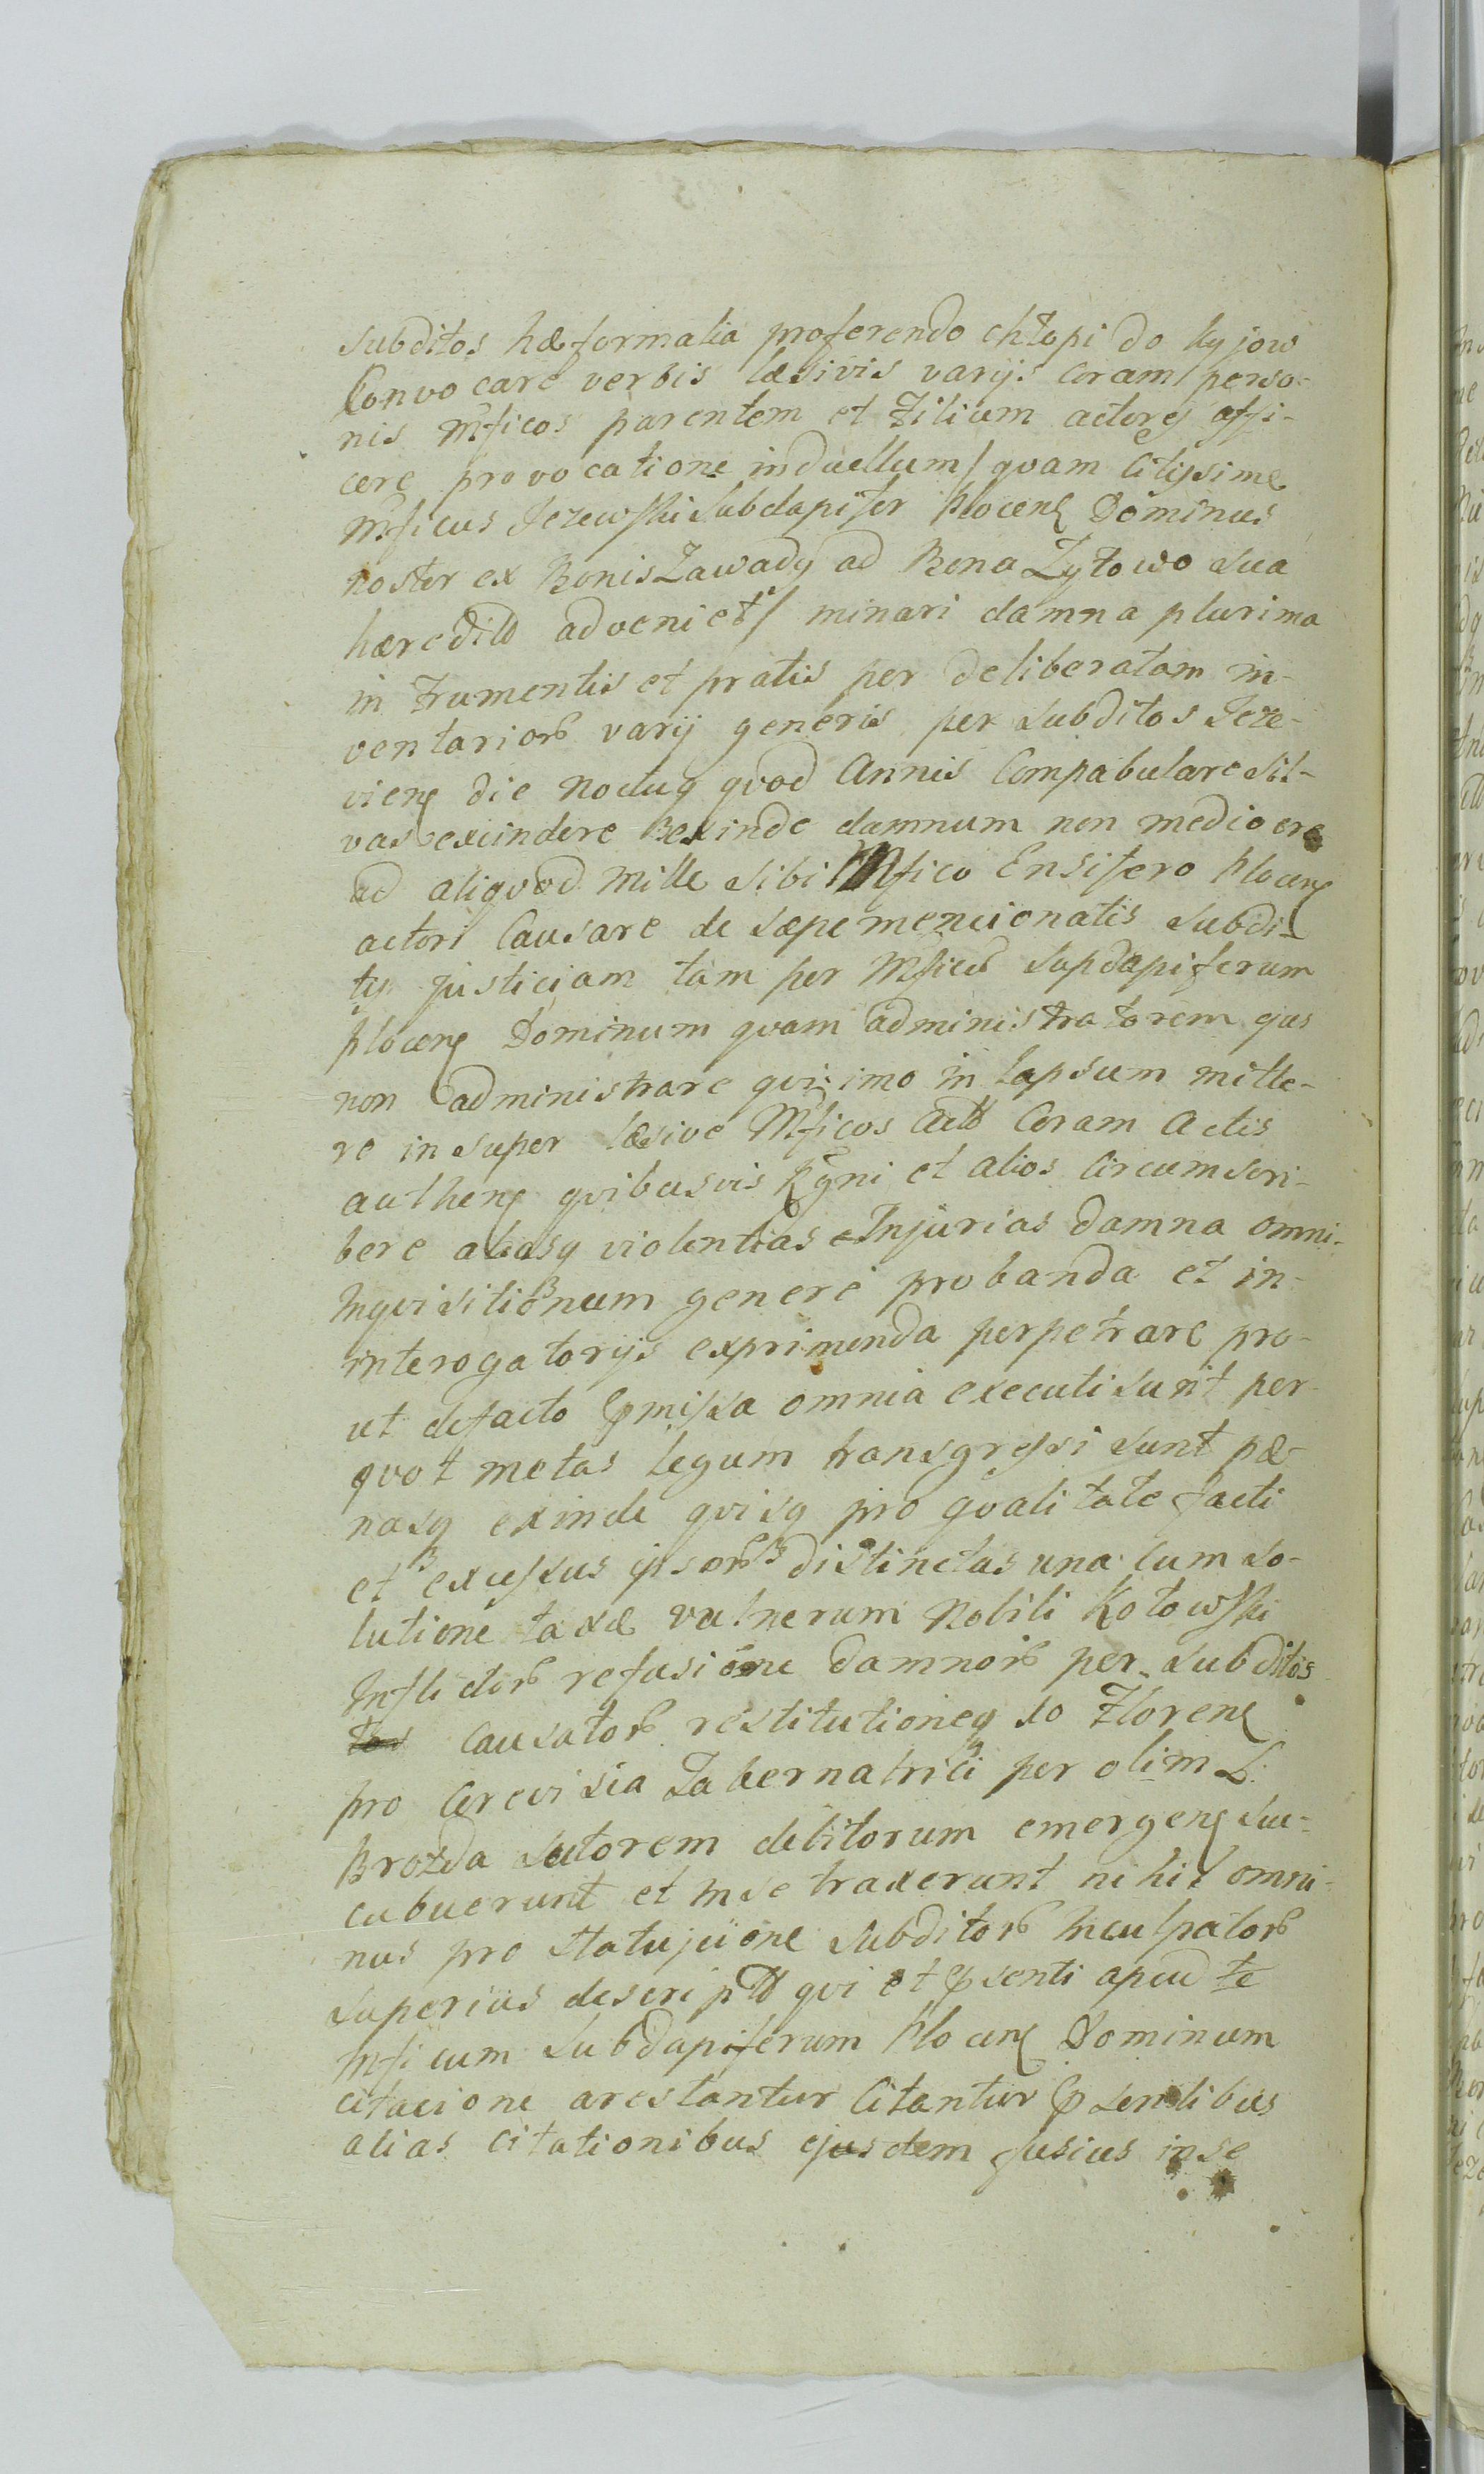 subditos hæ formalia proferendo chłopi do kyjow
Convocare verbis læsivis varijs coram perso-
nis Mficos parentem et Filium actores affi-
cere provocatione in duellum/ quam Citissime
Mficus Jezewski Subdapifer Plocens Dominus
noster ex Bonis Zawady ad Bona Zytowo sua
hæredit adveniet/ minari damna plurima
in Frumentis et pratis per deliberatam in-
ventarior varij generis per subditos Jeze-
viens die noctuq quod Annis Compabulare Sil-
vas excindere exinde damnum non mediocre
ad aliquod mille sibi Mfico Ensifero Plocens
actori Causare de sæpe mencionatis subdi-
tis justiciam tam per Mficum Supdapiferum
plocens Dominum quam administratorem ejus
non administrare qui imo in lapsum mitte-
re insuper læsive Mficos Act Coram Actis
authens quibusvis Rgni et alios Circumscri-
bere aliasq violentias Injurias damna omni-
Inquisitionum genere probanda et in-
interogatorijs exprimenda perpetrare pro-
ut defacto pmissa omnia executi sunt per
quot metas legum transgressi sunt pæ-
nasq exinde quisq pro qualitate facti
et excessus ipsor distinctas una cum so-
lutione taxæ vulnerum Nobili Kotowski
Inflictor refusione damnor per subditos
causator restitutioneq 10 Florens
pro Cerevisia Tabernatrici per olim L.
Brozda Sutorem debitorum emergens suc-
cubuerunt et in se traxerunt nihil omni-
nus pro statujcione subditor Inculpator
superius descript qui et psenti apud te
Mficum Subdapiferum Plocens Dominum
citacione arestantur Citantur psentibus
alias citationibus ejusdem fusius in se